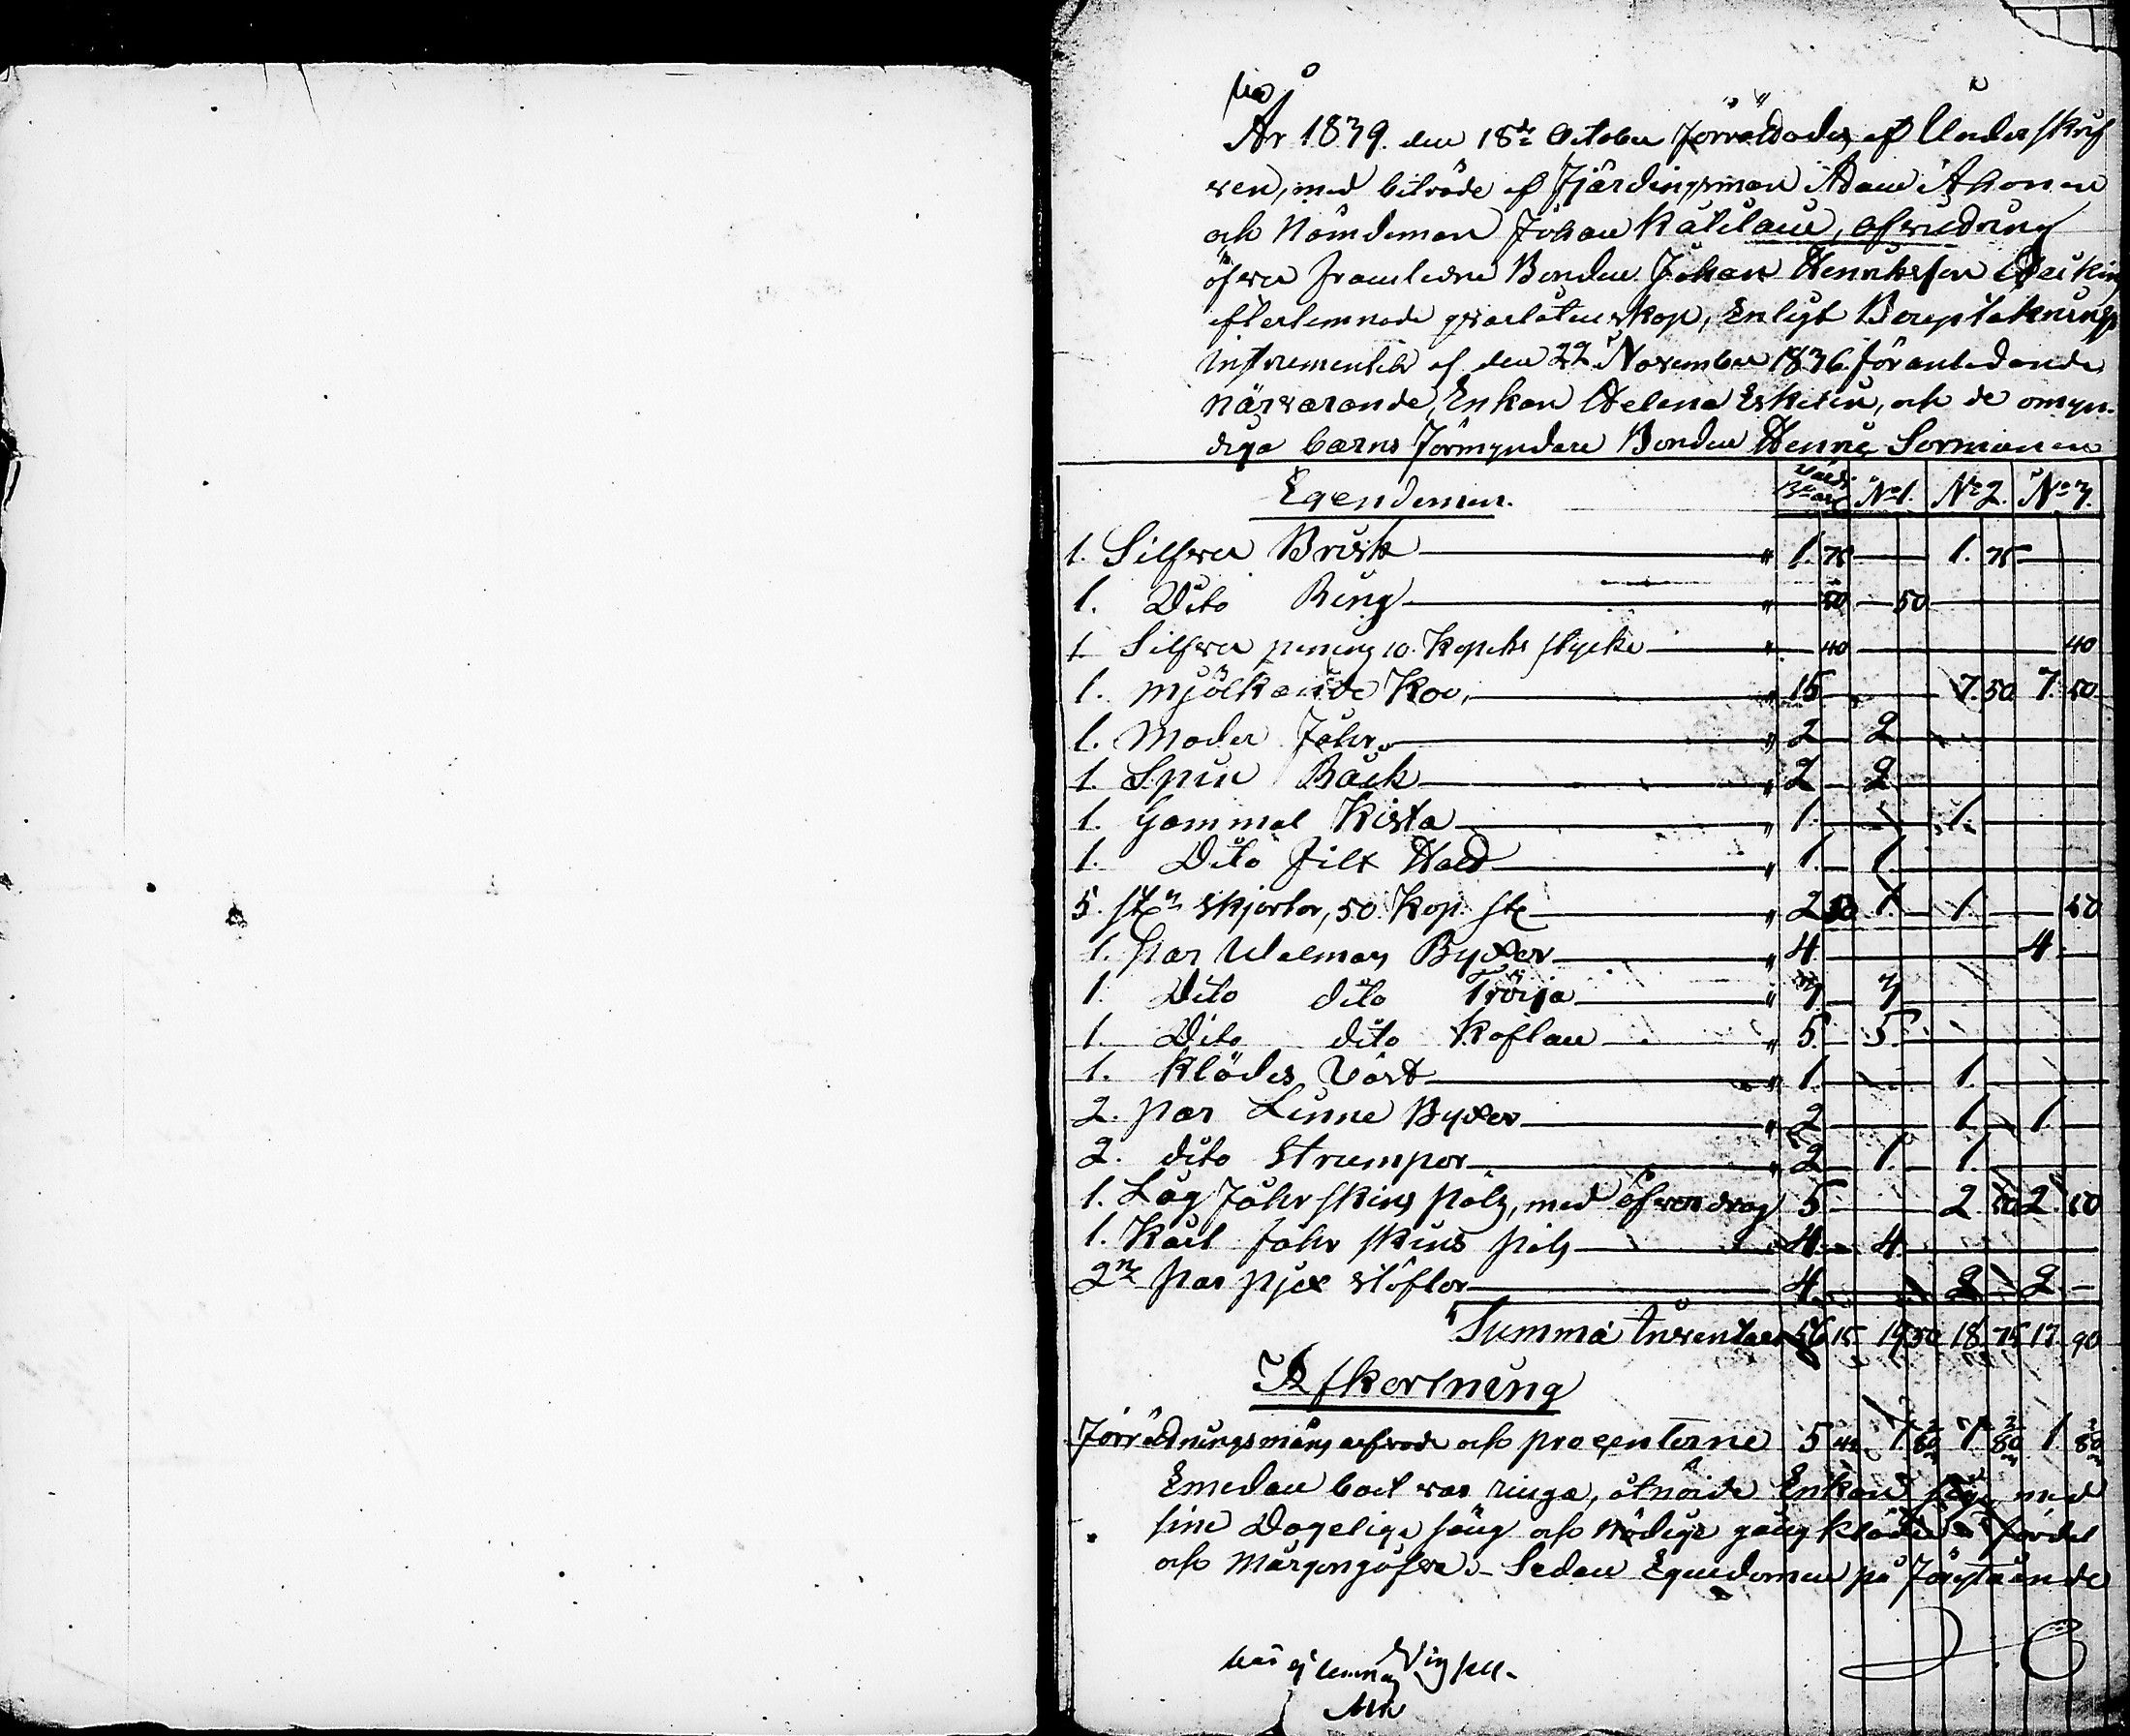 År 1839. den 18de October förrättades af Underskrif
ven, med biträde af Fjärdingsman Adam Ahonen
och Nämdeman Johan Katilain, afvittring
öfver framledne Bonden Johan Henrikson
efterlemnade qvarlåtenskap, Enligt Bouptekning
instrumentet af den 22 November 1836. föranledande
närvarande, Enkan Helena Eskelin, och de omyn-
diga barns Förmyndare Bonden Henric Sormunen
Egendomen. Värde No 1. No 2. No 3.
1. Silfver Brisk " 1. 75 1. 75
1. Dito Ring " 50 50
1 Silfver pening 10. Kopeks stycke " 40 40
1. mjölkande Ko, " 15 7. 50 7. 50
1. Moder Fåhr " 2 2
1. Spin Råck " 2 2
1. Gammal Kista " 1. 1.
1. Dito Filt Hatt " 1. 1.
5. st. skjortor, 50. Kop. st " 2 50 1. 1. 50
1. par Walmars Byxor " 4 4
1. Dito dito Tröija " 3 3
1. Dito dito Koftan " 5. 5.
1. Klädes Väst " 1. 1.
2. par Linne Byxor " 2 1 1
2. dito Strumpor " 2 1. 1.
1. Låg Fåhrskins päls, med öfverdrag 5 2. 50 2. 50
1. Karl fåhr skins päls 4 4
2ne par pjex stöflor 4 2 2
Summa Inventari 56 15 19 50 18. 75 17. 90
Afkortning
Förrättningsmans arfvode och procenterne 5 1 80 1 80 1 80
Emedan boet var ringa, åtnöjde Enkan sig med
sine Dageliga säng och nödige gång kläder förde
och Morgongåfva. Sedan Egendomen på Förestående